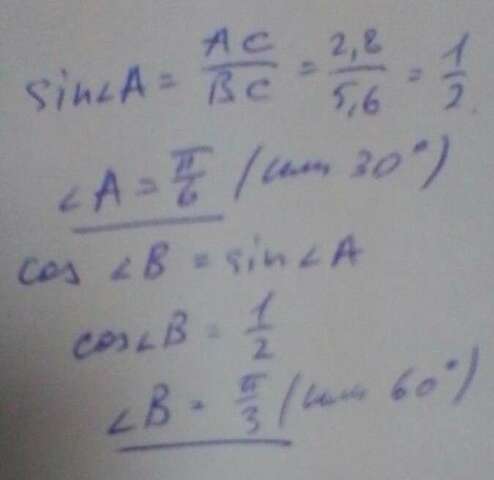 sin∠A = AC/BC = 2,8/5,6 = 1/2
∠A = π/6 (или 30°)
cos ∠B = sin∠A
cos∠B = 1/2
∠B = π/3 (или 60°)